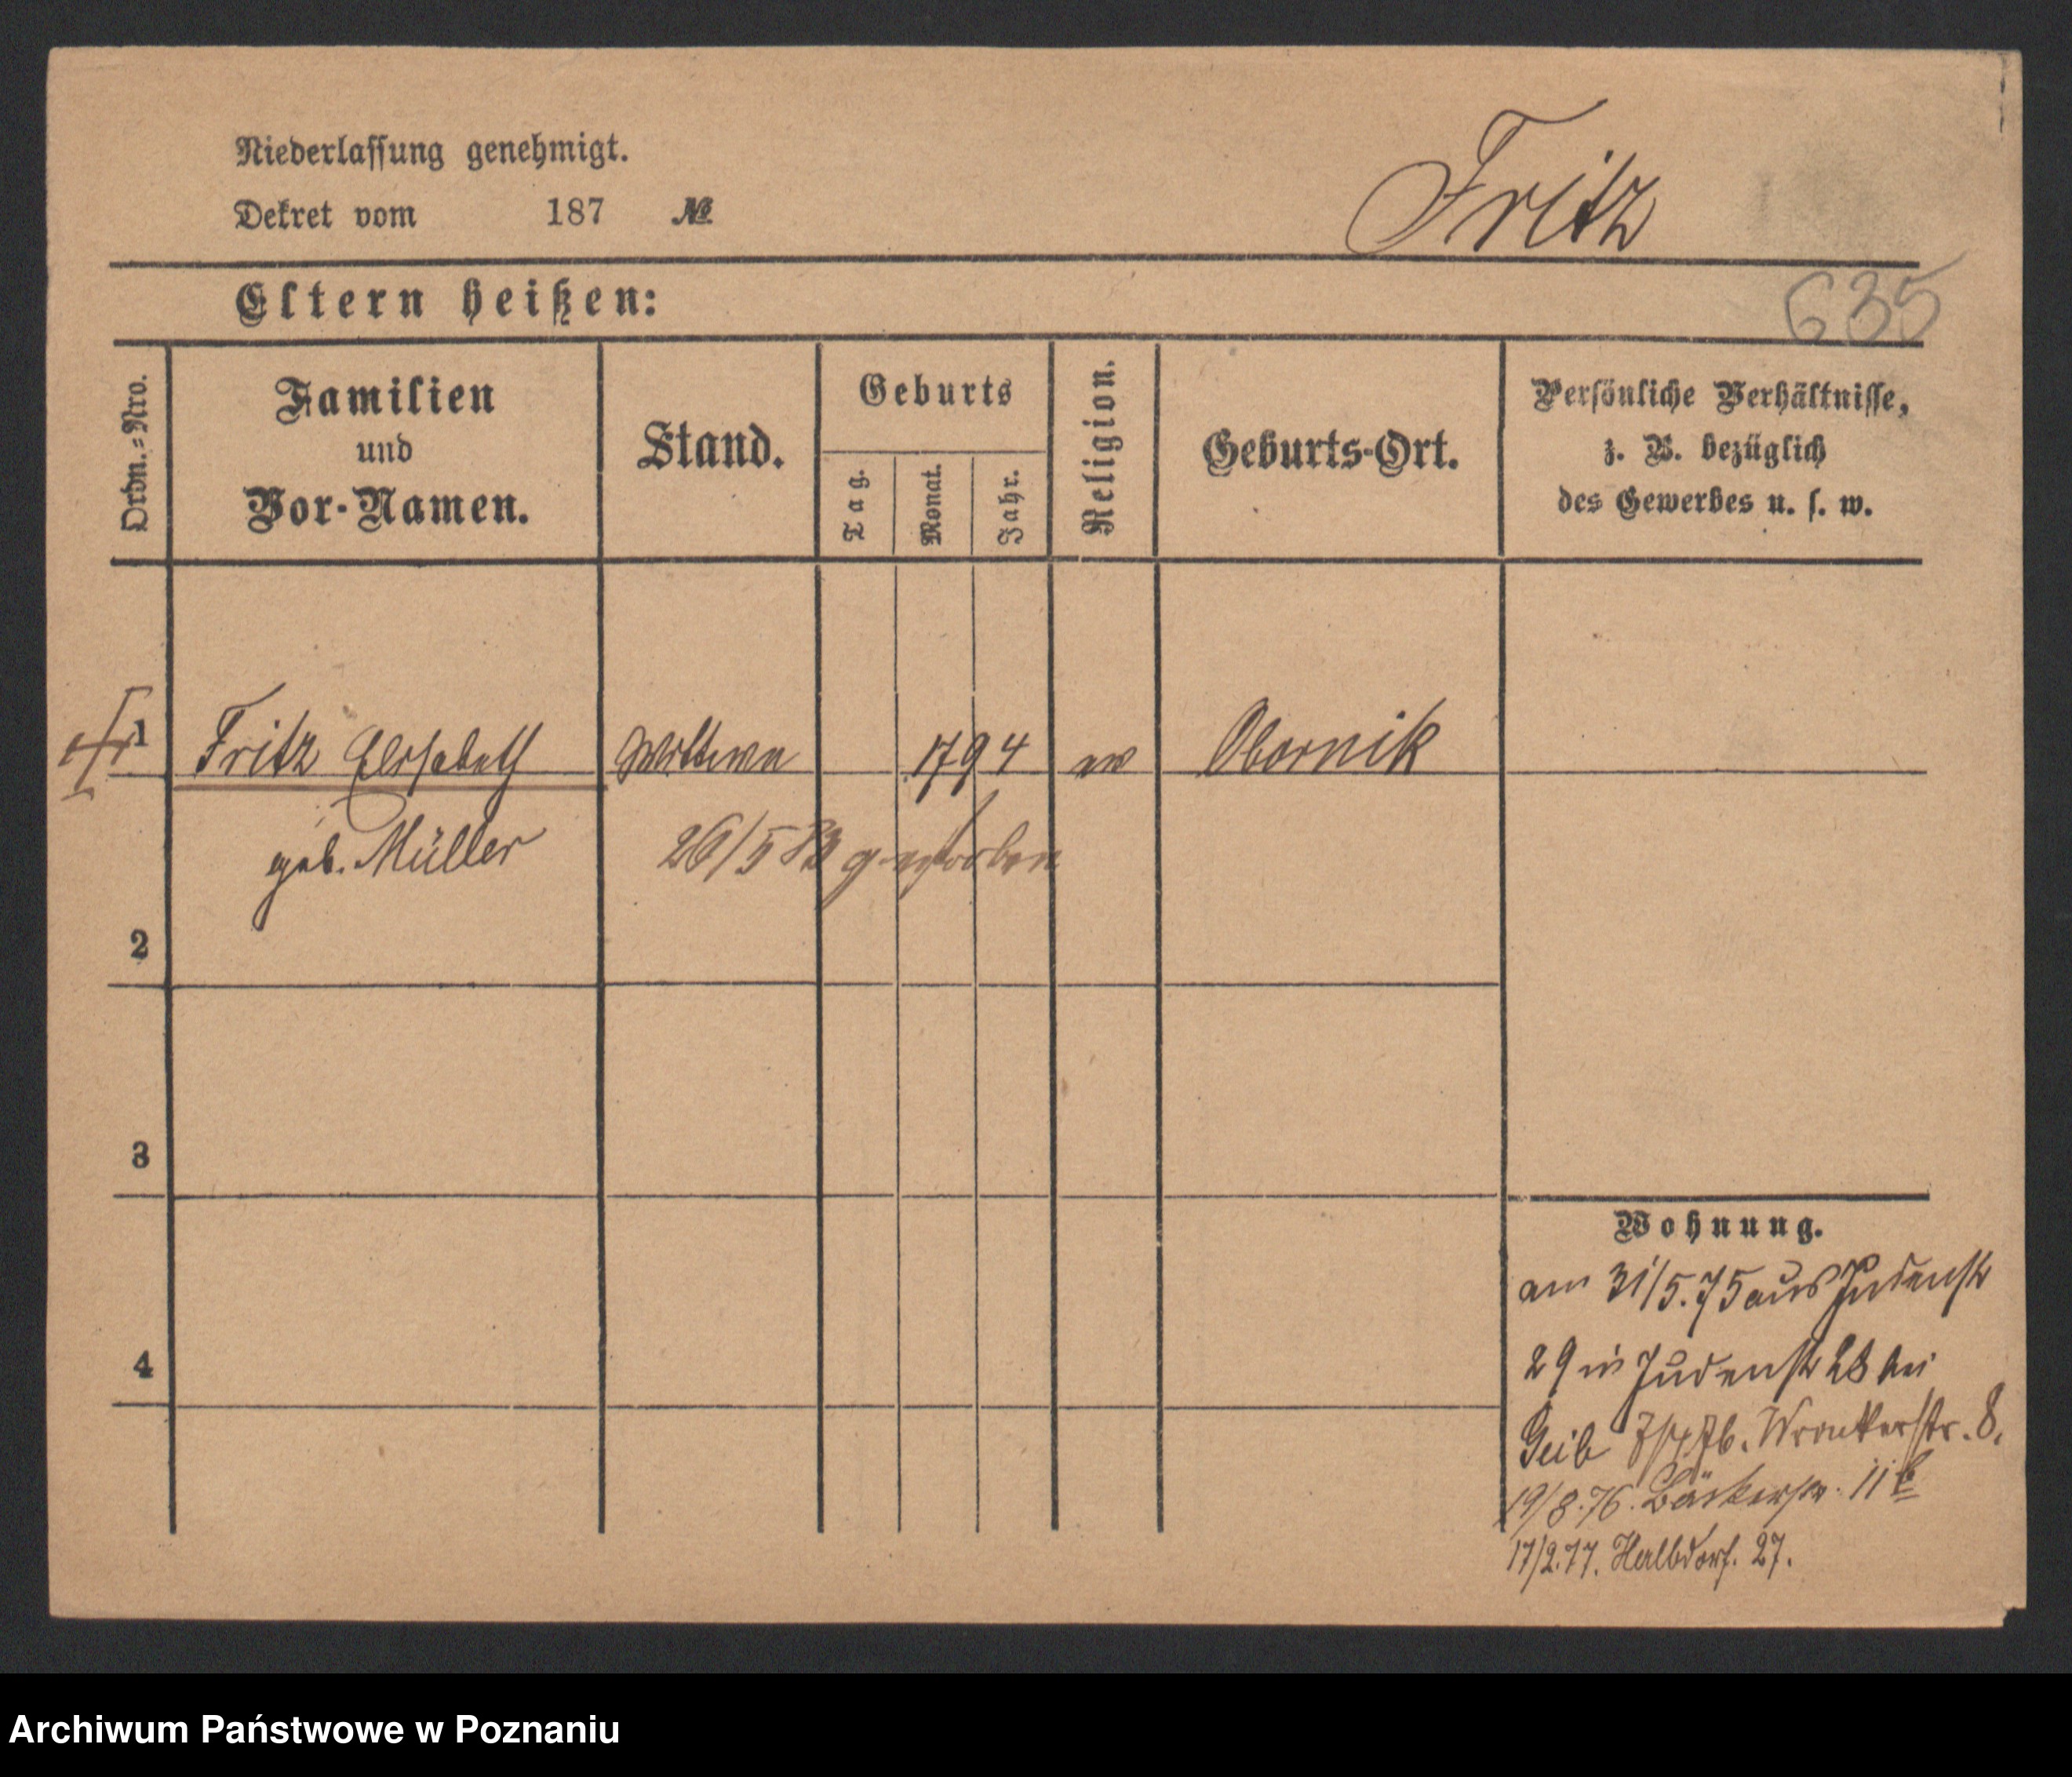 Niederlassung genehmigt.
Dekret vom 187 №
Fritz
635
Eltern heißen:
Ordn.=Nro.
Familien
und
Vor-Namen.
Stand.
Geburts
Tag.
Monat.
Jahr.
Religion.
Geburts-Ort.
Persönliche Verhältnisse,
z. B. bezüglich
des Gewerbes u. s. w.
1 Fritz Elisabeth Wittwe 1794 ev Obornik
geb. Müller 26/5 83 gestorben
2
3
4
Wohnung.
am 31/5.75 aus Judenstr
29 in Judenstr 28 bei
Geib 7/4 76. Wronkerstr. 8.
19/8.76. Bäckerstr. 11b
17/2.77. Halbdorf. 27.
Archiwum Państwowe w Poznaniu